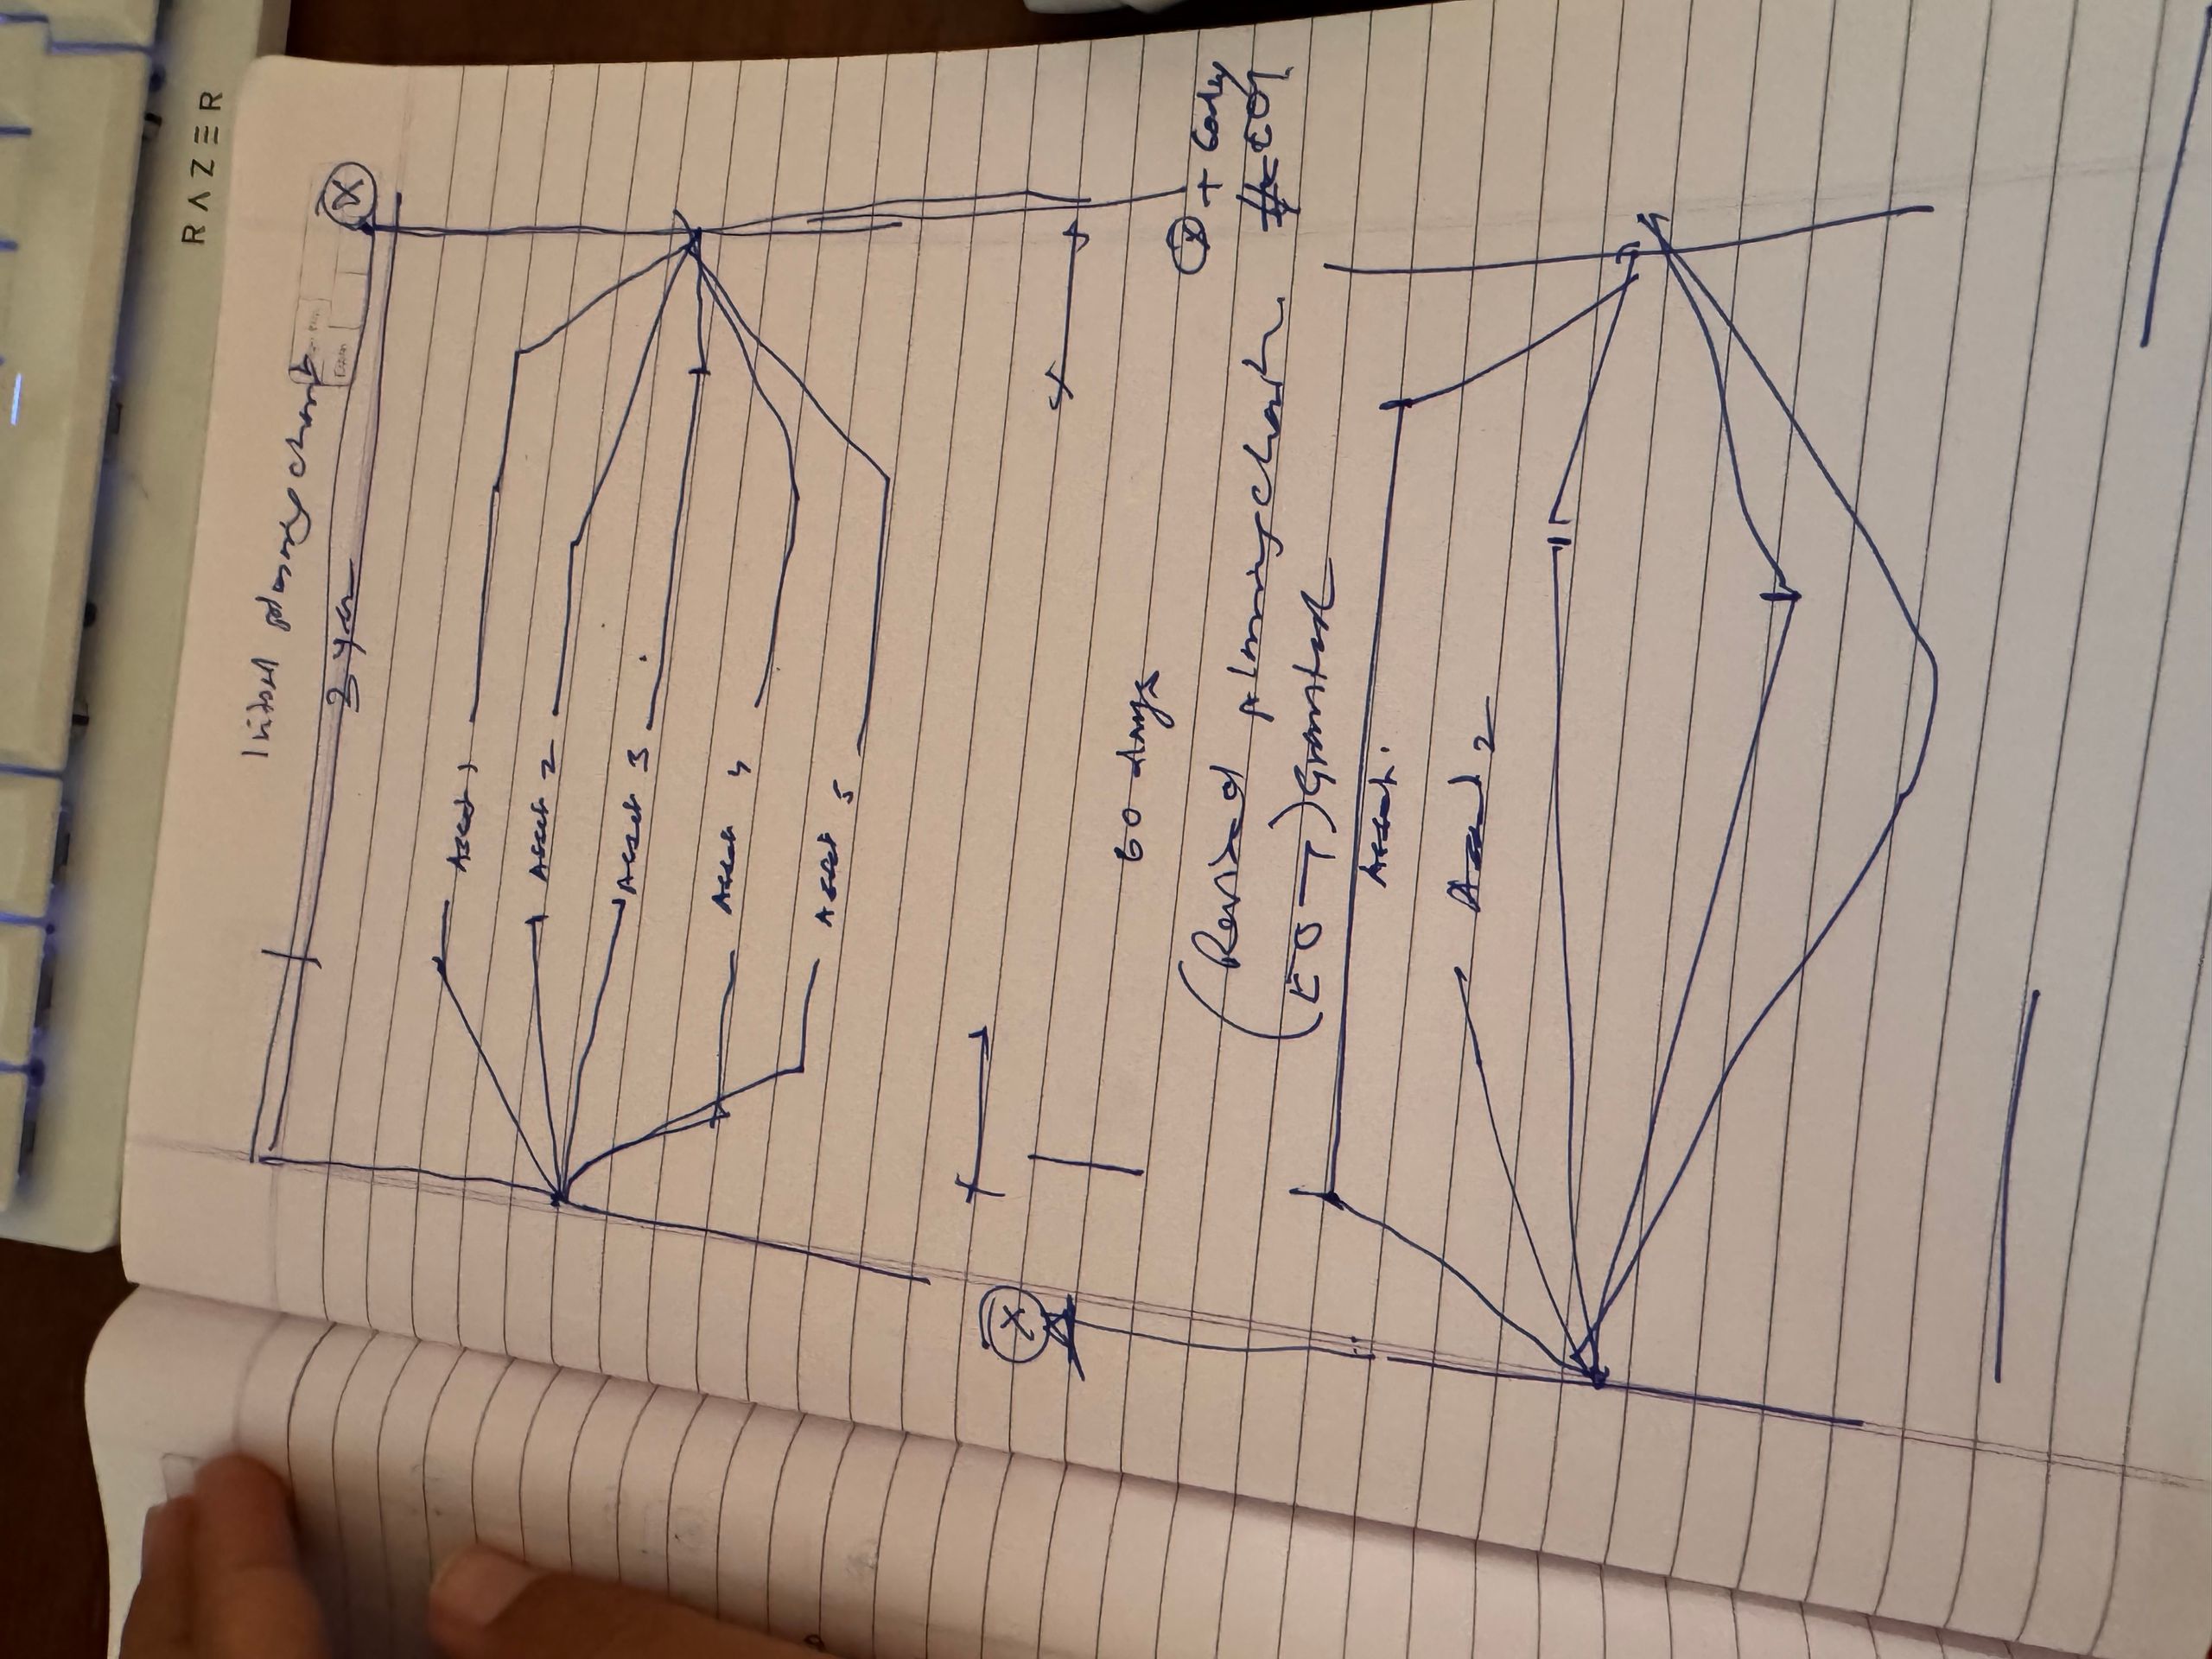 RAZER
Initial planning chart
X
2 year
Asset 1
Asset 2
Asset 3
Asset 4
Asset 5
60 days
X
(Revised planning chart
(EOT) Granted
Asset
Asset 2